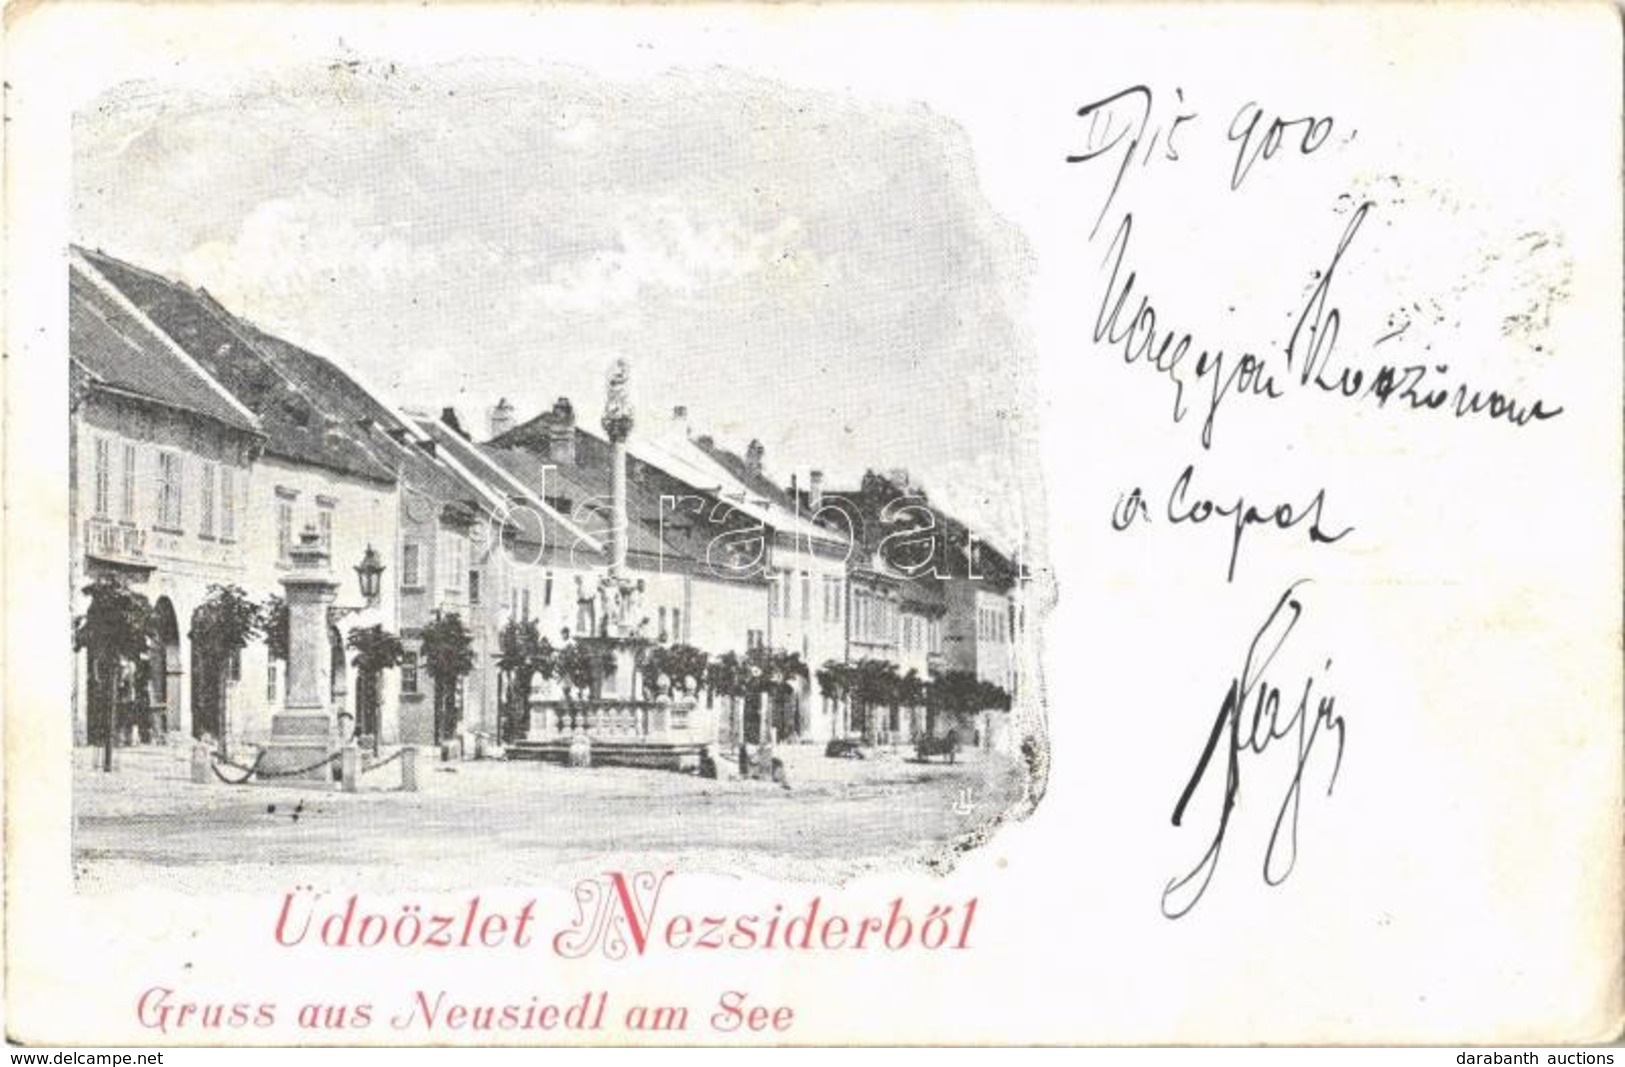 II/15 900.
Nagyon köszönöm
a lapot
darabanth
Üdvözlet Nezsiderből
Gruss aus Neusiedl am See
www.delcampe.net
darabanth auctions